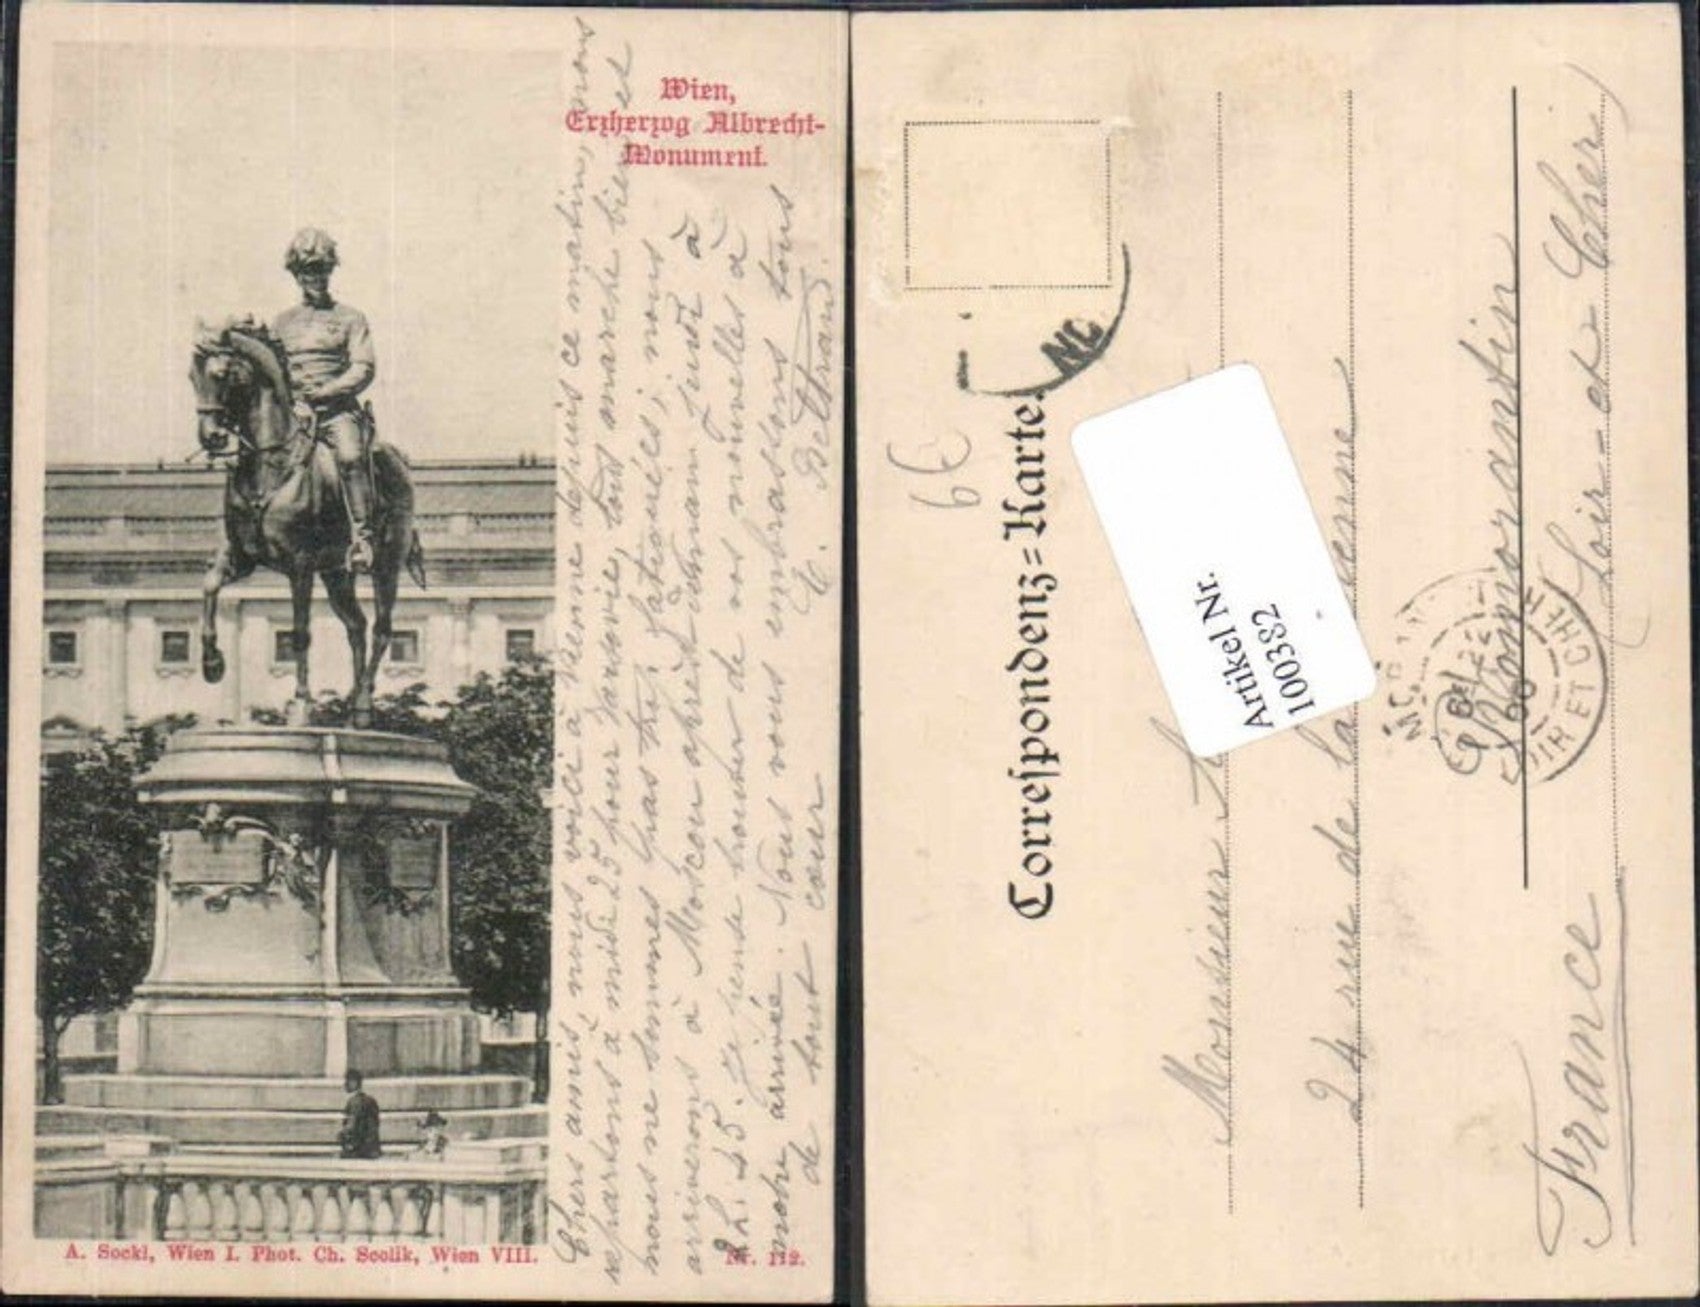 Wien,
Erzherzog Albrecht-
Monument.
Chers amis, nous voici à Vienne depuis ce matin, nous
repartons à midi 25 pour Varsovie, tout marche bien et
nous ne sommes pas trop fatigués; nous
arriverons à Moscou après demain jeudi à
2h.45. Je pense trouver de vos nouvelles à
notre arrivée. Nous vous embrassons tous
de tout cœur
E. Beltrand.
A. Sockl, Wien I. Phot. Ch. Scolik, Wien VIII.
Nr. 112.
Correspondenz=Karte.
6E
Artikel Nr.
100382
Monsieur
24 rue de la
Romorantin
(Loir-et Cher)
France
22
IR ET CHER